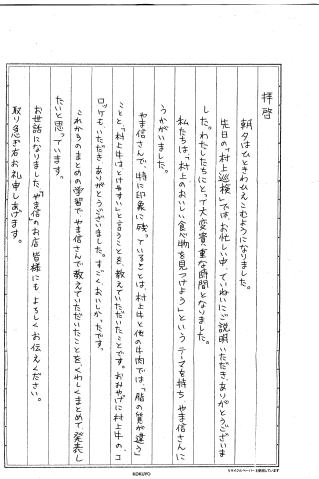 拝啓
朝夕はひときわひえこむようになりました。
先日の「村上巡検」では、お忙しい中、ていねいにご説明いただき、ありがとうございま
した。わたしたちにとって大変貴重な時間となりました。
私たちは、「村上のおいしい食べ物を見つけよう」というテーマを持ち、やま信さんに
うかがいました。
やま信さんで、特に印象に残っていることは、村上牛と他の牛肉では、「脂の質が違う」
ことと、「村上牛はとけやすい」と言うことを、教えていただいたことです。おみやげに村上牛のコ
ロッケもいただき、ありがとうございました。すごくおいしかったです。
これからのまとめの学習で、やま信さんで教えていただいたことを、くわしくまとめて発表し
たいと思っています。
お世話になりました「やま信」のお店、皆様にもよろしくお伝えください。
取り急ぎ右お礼申しあげます。
KOKUYO
リサイクルペーパーを使用しています